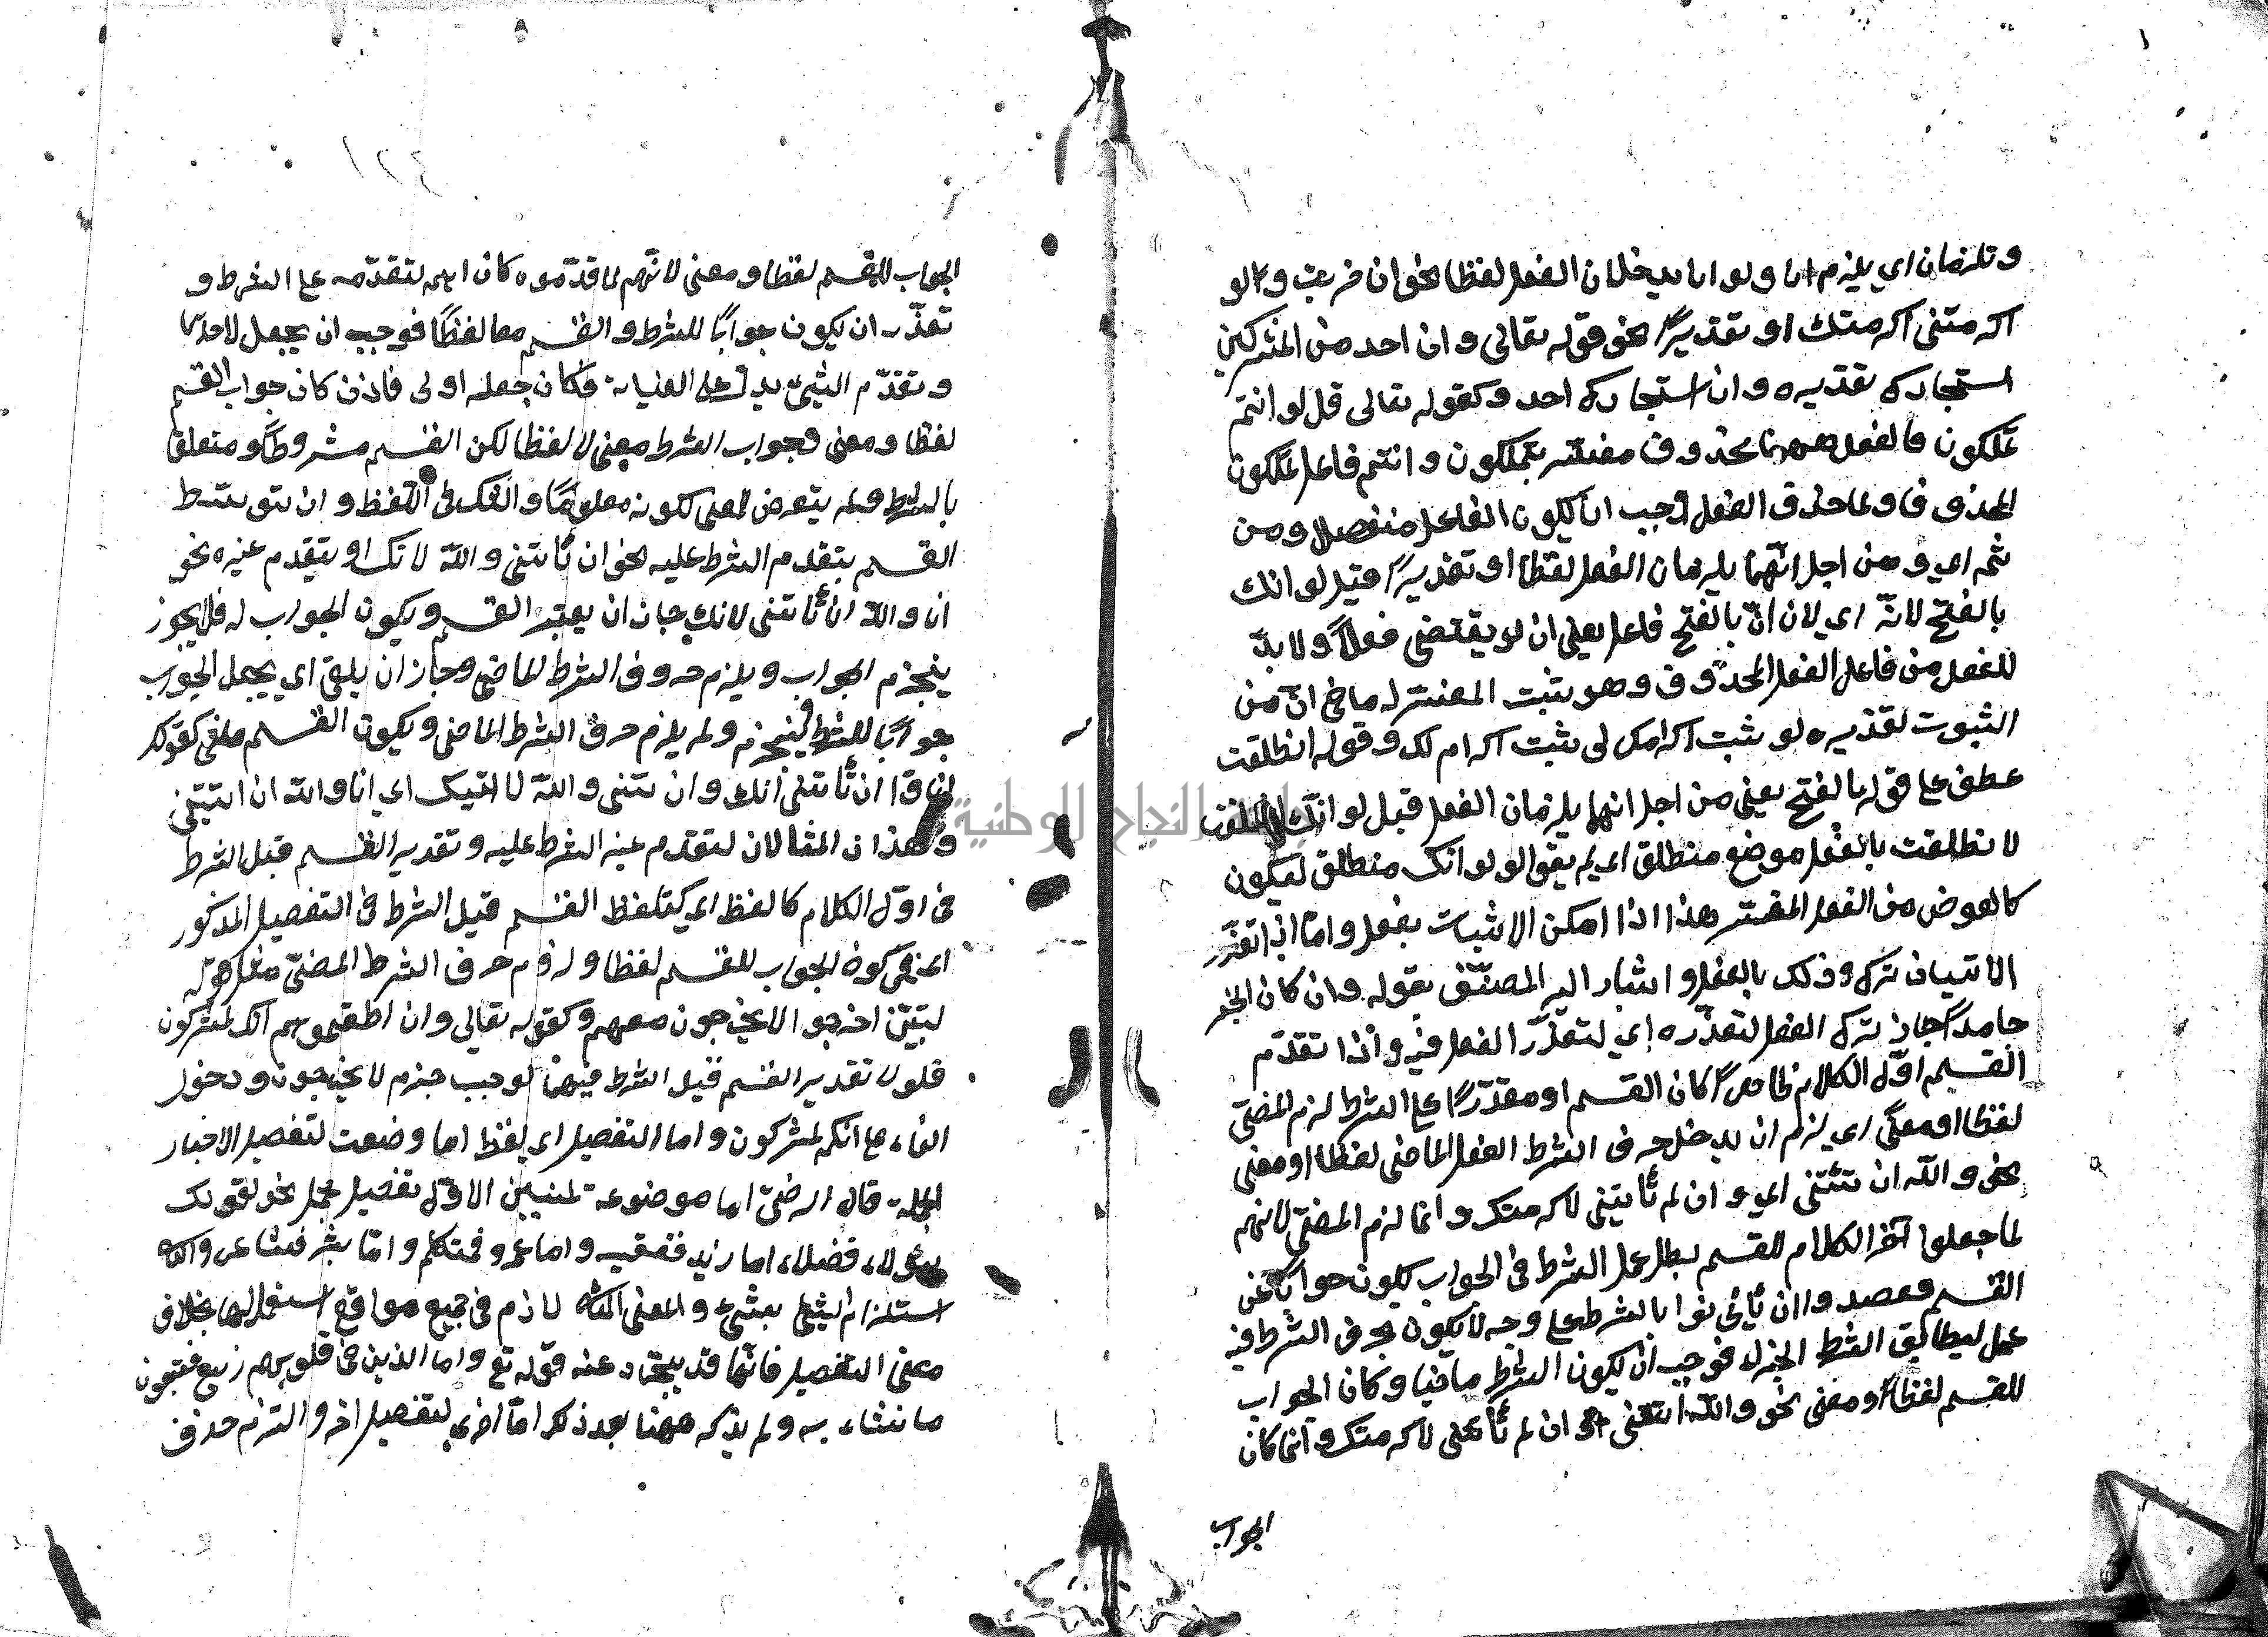 وتلزمان اي يلزم ان ولو ان يدخلان الفعل لفظا نحو ان ضربت ولو
اكرمتنى اكرمتك او تقديرًا نحو قوله تعالى وان احد من المشركين
استجارك تقديره وان استجارك احد وكقوله تعالى قل لو انتم
تملكون فالفعل ههنا محذوف مفسّر بتملكون وانتم فاعل تملكون
المحذوف ولما حذف الفعل وجب ان يكون الفاعل منفصلا ومن
ثمه اي ومن اجل انّهما يلزمان الفعل لفظا او تقديرًا قيل لو انك
بالفتح لانّه اي لان انّ بالفتح فاعل يعني ان لو يقتضى فعلًا ولا بدّ
للفعل من فاعل الفعل المحذوف وهو يثبت المفسّر له ما في انّ من
الثبوت تقديره لو ثبت اكرامك لي ثبت اكرام لك وقوله انطلقت
عطف على قوله بالفتح يعني من اجل انهما يلزمان الفعل قيل لو انك انطلقت
لانطلقت بالفعل موضع منطلق اي لم يقولو لو انك منطلق ليكون
كالعوض من الفعل المفسّر هذا اذا امكن الاثبات بفعل وامّا اذا تعذّر
الاتيان ترك وذلك بالفعل واشار اليه المصنّف بقوله وان كان الخبر
جامدًا جاز ترك الفعل لتعذّره اي لتعذّر الفعل فيه واذا تقدّم
القسم اوّل الكلام ظاهرًا كان القسم او مقدّرًا على الشرط لزم المضيّ
لفظا او معنًى اي لزم ان يدخل حرف الشرط الفعل الماضى لفظا او معنى
نحو والله ان تئتنى اي وان لم تأتيني لاكرمتك وانما لزم المضيّ لانهم
لما جعلوا آخر الكلام للقسم بطل عمل الشرط في الجواب يكون جوابًا عن
القسم وقصدوا ان يأتي نوا بالشرط على وجه لا يكون بحرف الشرط فيه
عمل ليطابق الشرط الجزاء فوجب ان يكون الشرط ماضيا وكان الجواب
للقسم لفظًا ومعنى نحو والله ان لم تأتني لاكرمتك وانما كان
الجواب
الجواب للقسم لفظا ومعنى لانّهم لما قدّموه كان اهم لتقدّمه على الشرط و
تعذّر ان يكون جوابًا للشرط والقسم معا لفظًا فوجب ان يجعل لاحدهما
وتقدّم الشيئ يدل على العناية فكان جعله اولى فاذن كان جواب القسم
لفظا ومعنى وجواب الشرط معنى لا لفظا لكن القسم مشروطًا ومتعلقا
بالشرط ولم يتعرض للمعنى لكونه معلومًا والشك في اللفظ وان توسّط
القسم بتقدم الشرط عليه نحو ان تأتني والله لاتك او بتقدم غيره نحو
انا والله ان تأتنى لاتك جاز ان يعتبر القسم ويكون الجواب له فلا يجوز
ينجزم الجواب ويلزم حروف الشرط الماضي وجاز ان يلقى اي يجعل الجواب
جوابًا للشرط فينجزم ولم يلزم حرف الشرط الماضى ويكون القسم ملغى كقولك
ان تأتني آتك وان تتنى والله لاتيك اي انا والله ان اتيتني
وهذان المثالان لتقدم غير الشرط عليه وتقدير القسم قبل الشرط
في اوّل الكلام كاللفظ اي كتلفظ القسم قبل الشرط فى التفصيل المذكور
اعني في كون الجواب للقسم لفظا ولزوم حرف الشرط المضيّ مثل قوله
لئن اخرجوا لا يخرجون معهم وكقوله تعالى وان اطعتموهم انكم لمشركون
فلولا تقدير القسم قبل الشرط فيهما لوجب جزم لا يخرجون ودخول
الفاء على انكم لمشركون واما التفصيل اي لفظ اما وضعت لتفصيل الاخبار
الجملة قال الرضىّ اما موضوعة لمعنيين الاوّل تفصيل مجمل نحو لقولك
هؤلاء فضلاء اما زيد ففقيه واما عمرو فمتكلم وامّا بشر فشاعر والثاني
استلزام شيئ بشيئ والمعنى الثاني لازم في جميع مواقع استعمالها بخلاف
معنى التفصيل فانّها قد يتجرّد عنه قوله تع واما الذين في قلوبهم زيغ فيتبعون
ما تشابه ولم يذكر ههنا بعد ذكر امّا اخرى لتفصيل اخر والتزم حذف
جامعة النجاح الوطنية